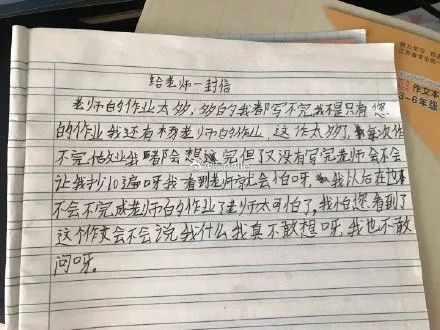 给老师一封信
老师的作业太够,够的我都写不完,我不是只有您
的作业我还有本老师的作业,这作太够了,每次作
不完作业我都会想写完但又没有写完老师会不会
让我抄10遍呀我看到老师就会怕呀,我以后在也
不会不完成老师的作业了老师太可怕了,我怕您看到了
这个作文会不会说我什么我真不敢想呀,我也不敢
问呀。
作文本
3-6年级